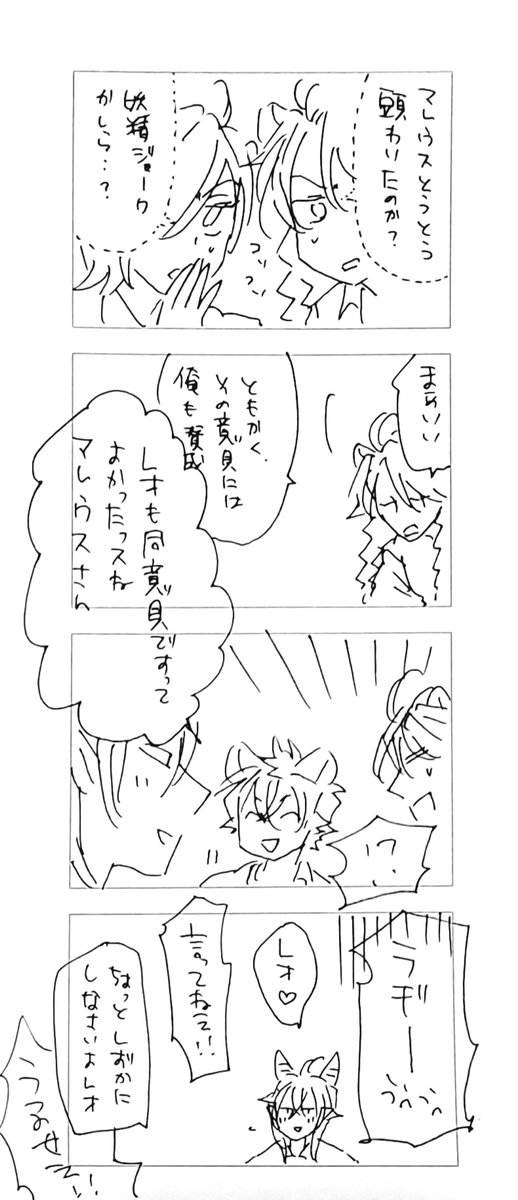 マレウスとうとう
頭わいたのか?
妖精ジョーク
かしら‥?
コソ
コソ
まぁいい
ともかく、
その意見には
俺も賛成
レオも同意見ですって
よかったっスね
マレウスさん
!?
ラギー
レオ♡
言ってねぇ!!
ちょっとしずかに
しなさいよレオ
うるせぇ!!